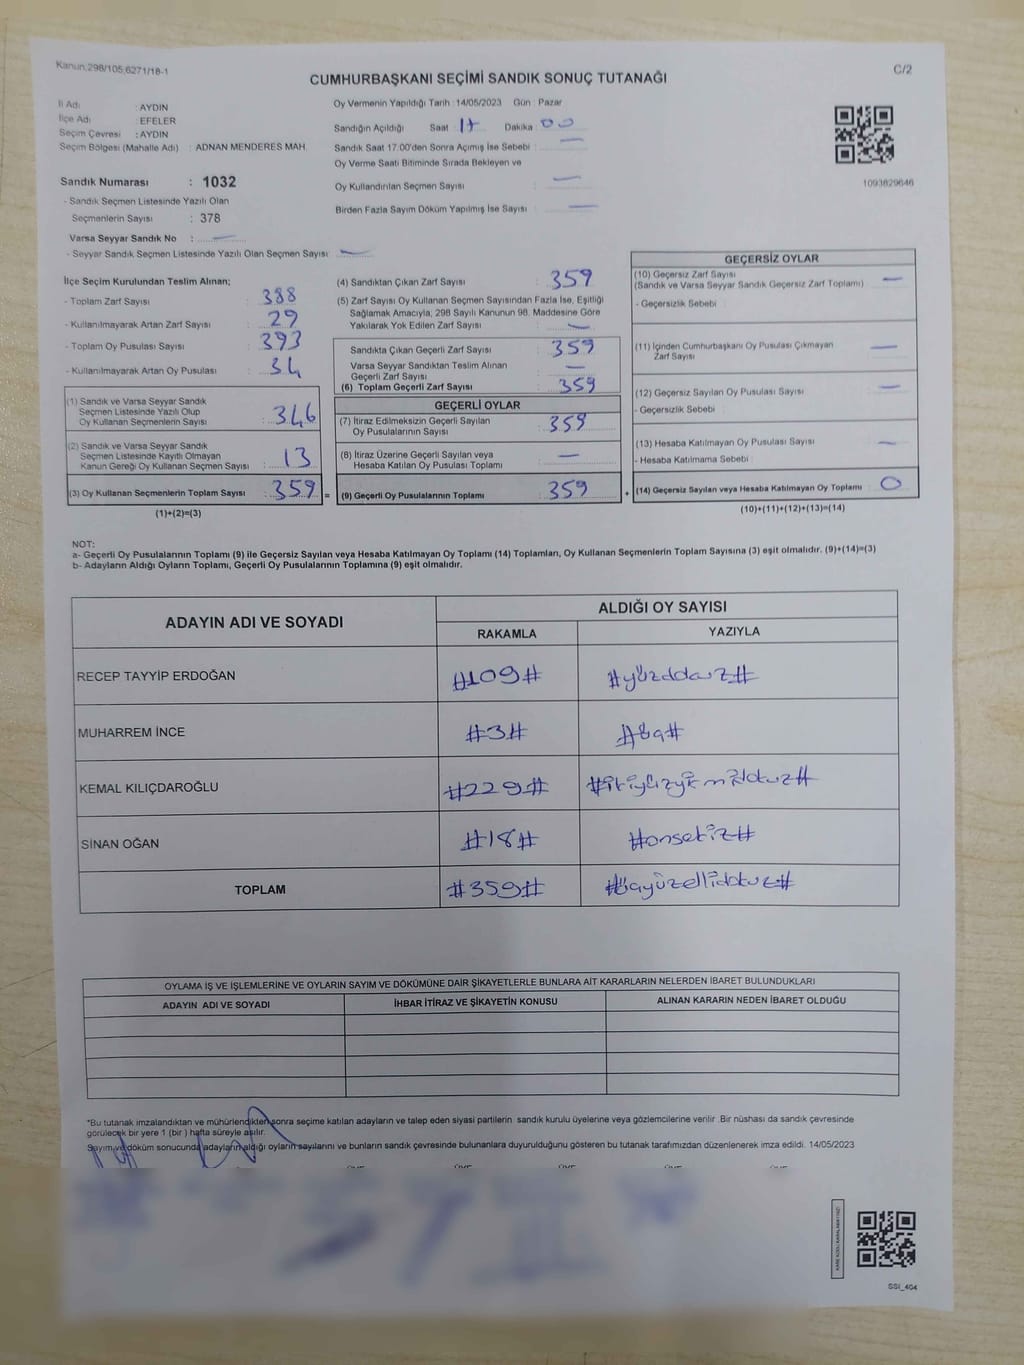 Kanun:298/105,6271/18-1
C/2
CUMHURBAŞKANI SEÇİMİ SANDIK SONUÇ TUTANAĞI
İl Adı : AYDIN
İlçe Adı : EFELER
Seçim Çevresi : AYDIN
Seçim Bölgesi (Mahalle Adı) : ADNAN MENDERES MAH.
Sandık Numarası : 1032
- Sandık Seçmen Listesinde Yazılı Olan
Seçmenlerin Sayısı : 378
Varsa Seyyar Sandık No : —
- Seyyar Sandık Seçmen Listesinde Yazılı Olan Seçmen Sayısı : —
Oy Vermenin Yapıldığı Tarih :14/05/2023 Gün : Pazar
Sandığın Açıldığı Saat 17 Dakika 00
Sandık Saat 17.00'den Sonra Açılmış İse Sebebi : —
Oy Verme Saati Bitiminde Sırada Bekleyen ve
Oy Kullandırılan Seçmen Sayısı : —
Birden Fazla Sayım Döküm Yapılmış İse Sayısı : —
1093829646
İlçe Seçim Kurulundan Teslim Alınan;
- Toplam Zarf Sayısı : 388
- Kullanılmayarak Artan Zarf Sayısı : 29
- Toplam Oy Pusulası Sayısı : 393
- Kullanılmayarak Artan Oy Pusulası : 34
(1) Sandık ve Varsa Seyyar Sandık
Seçmen Listesinde Yazılı Olup
Oy Kullanan Seçmenlerin Sayısı : 346
(2) Sandık ve Varsa Seyyar Sandık
Seçmen Listesinde Kayıtlı Olmayan
Kanun Gereği Oy Kullanan Seçmen Sayısı : 13
(3) Oy Kullanan Seçmenlerin Toplam Sayısı : 359 =
(1)+(2)=(3)
(4) Sandıktan Çıkan Zarf Sayısı : 359
(5) Zarf Sayısı Oy Kullanan Seçmen Sayısından Fazla İse, Eşitliği
Sağlamak Amacıyla; 298 Sayılı Kanunun 98. Maddesine Göre
Yakılarak Yok Edilen Zarf Sayısı : —
Sandıkta Çıkan Geçerli Zarf Sayısı : 359
Varsa Seyyar Sandıktan Teslim Alınan
Geçerli Zarf Sayısı : —
(6) Toplam Geçerli Zarf Sayısı : 359
GEÇERLİ OYLAR
(7) İtiraz Edilmeksizin Geçerli Sayılan
Oy Pusulalarının Sayısı : 359
(8) İtiraz Üzerine Geçerli Sayılan veya
Hesaba Katılan Oy Pusulası Toplamı : —
(9) Geçerli Oy Pusulalarının Toplamı : 359 +
GEÇERSİZ OYLAR
(10) Geçersiz Zarf Sayısı
(Sandık ve Varsa Seyyar Sandık Geçersiz Zarf Toplamı) : —
- Geçersizlik Sebebi :
(11) İçinden Cumhurbaşkanı Oy Pusulası Çıkmayan
Zarf Sayısı : —
(12) Geçersiz Sayılan Oy Pusulası Sayısı : —
- Geçersizlik Sebebi :
(13) Hesaba Katılmayan Oy Pusulası Sayısı : —
- Hesaba Katılmama Sebebi :
(14) Geçersiz Sayılan veya Hesaba Katılmayan Oy Toplamı : 0
(10)+(11)+(12)+(13)=(14)
NOT:
a- Geçerli Oy Pusulalarının Toplamı (9) ile Geçersiz Sayılan veya Hesaba Katılmayan Oy Toplamı (14) Toplamları, Oy Kullanan Seçmenlerin Toplam Sayısına (3) eşit olmalıdır. (9)+(14)=(3)
b- Adayların Aldığı Oyların Toplamı, Geçerli Oy Pusulalarının Toplamına (9) eşit olmalıdır.
ADAYIN ADI VE SOYADI ALDIĞI OY SAYISI
RAKAMLA YAZIYLA
RECEP TAYYİP ERDOĞAN #109# #yüzdokuz#
MUHARREM İNCE #3# #üç#
KEMAL KILIÇDAROĞLU #229# #ikiyüzyirmidokuz#
SİNAN OĞAN #18# #onsekiz#
TOPLAM #359# #üçyüzellidokuz#
OYLAMA İŞ VE İŞLEMLERİNE VE OYLARIN SAYIM VE DÖKÜMÜNE DAİR ŞİKAYETLERLE BUNLARA AİT KARARLARIN NELERDEN İBARET BULUNDUKLARI
ADAYIN ADI VE SOYADI İHBAR İTİRAZ VE ŞİKAYETİN KONUSU ALINAN KARARIN NEDEN İBARET OLDUĞU
*Bu tutanak imzalandıktan ve mühürlendikten sonra seçime katılan adayların ve talep eden siyasi partilerin sandık kurulu üyelerine veya gözlemcilerine verilir .Bir nüshası da sandık çevresinde
görülecek bir yere 1 (bir ) hafta süreyle asılır.
Sayım ve döküm sonucunda adayların aldığı oyların sayılarını ve bunların sandık çevresinde bulunanlara duyurulduğunu gösteren bu tutanak tarafımızdan düzenlenerek imza edildi. 14/05/2023
SSİ_404